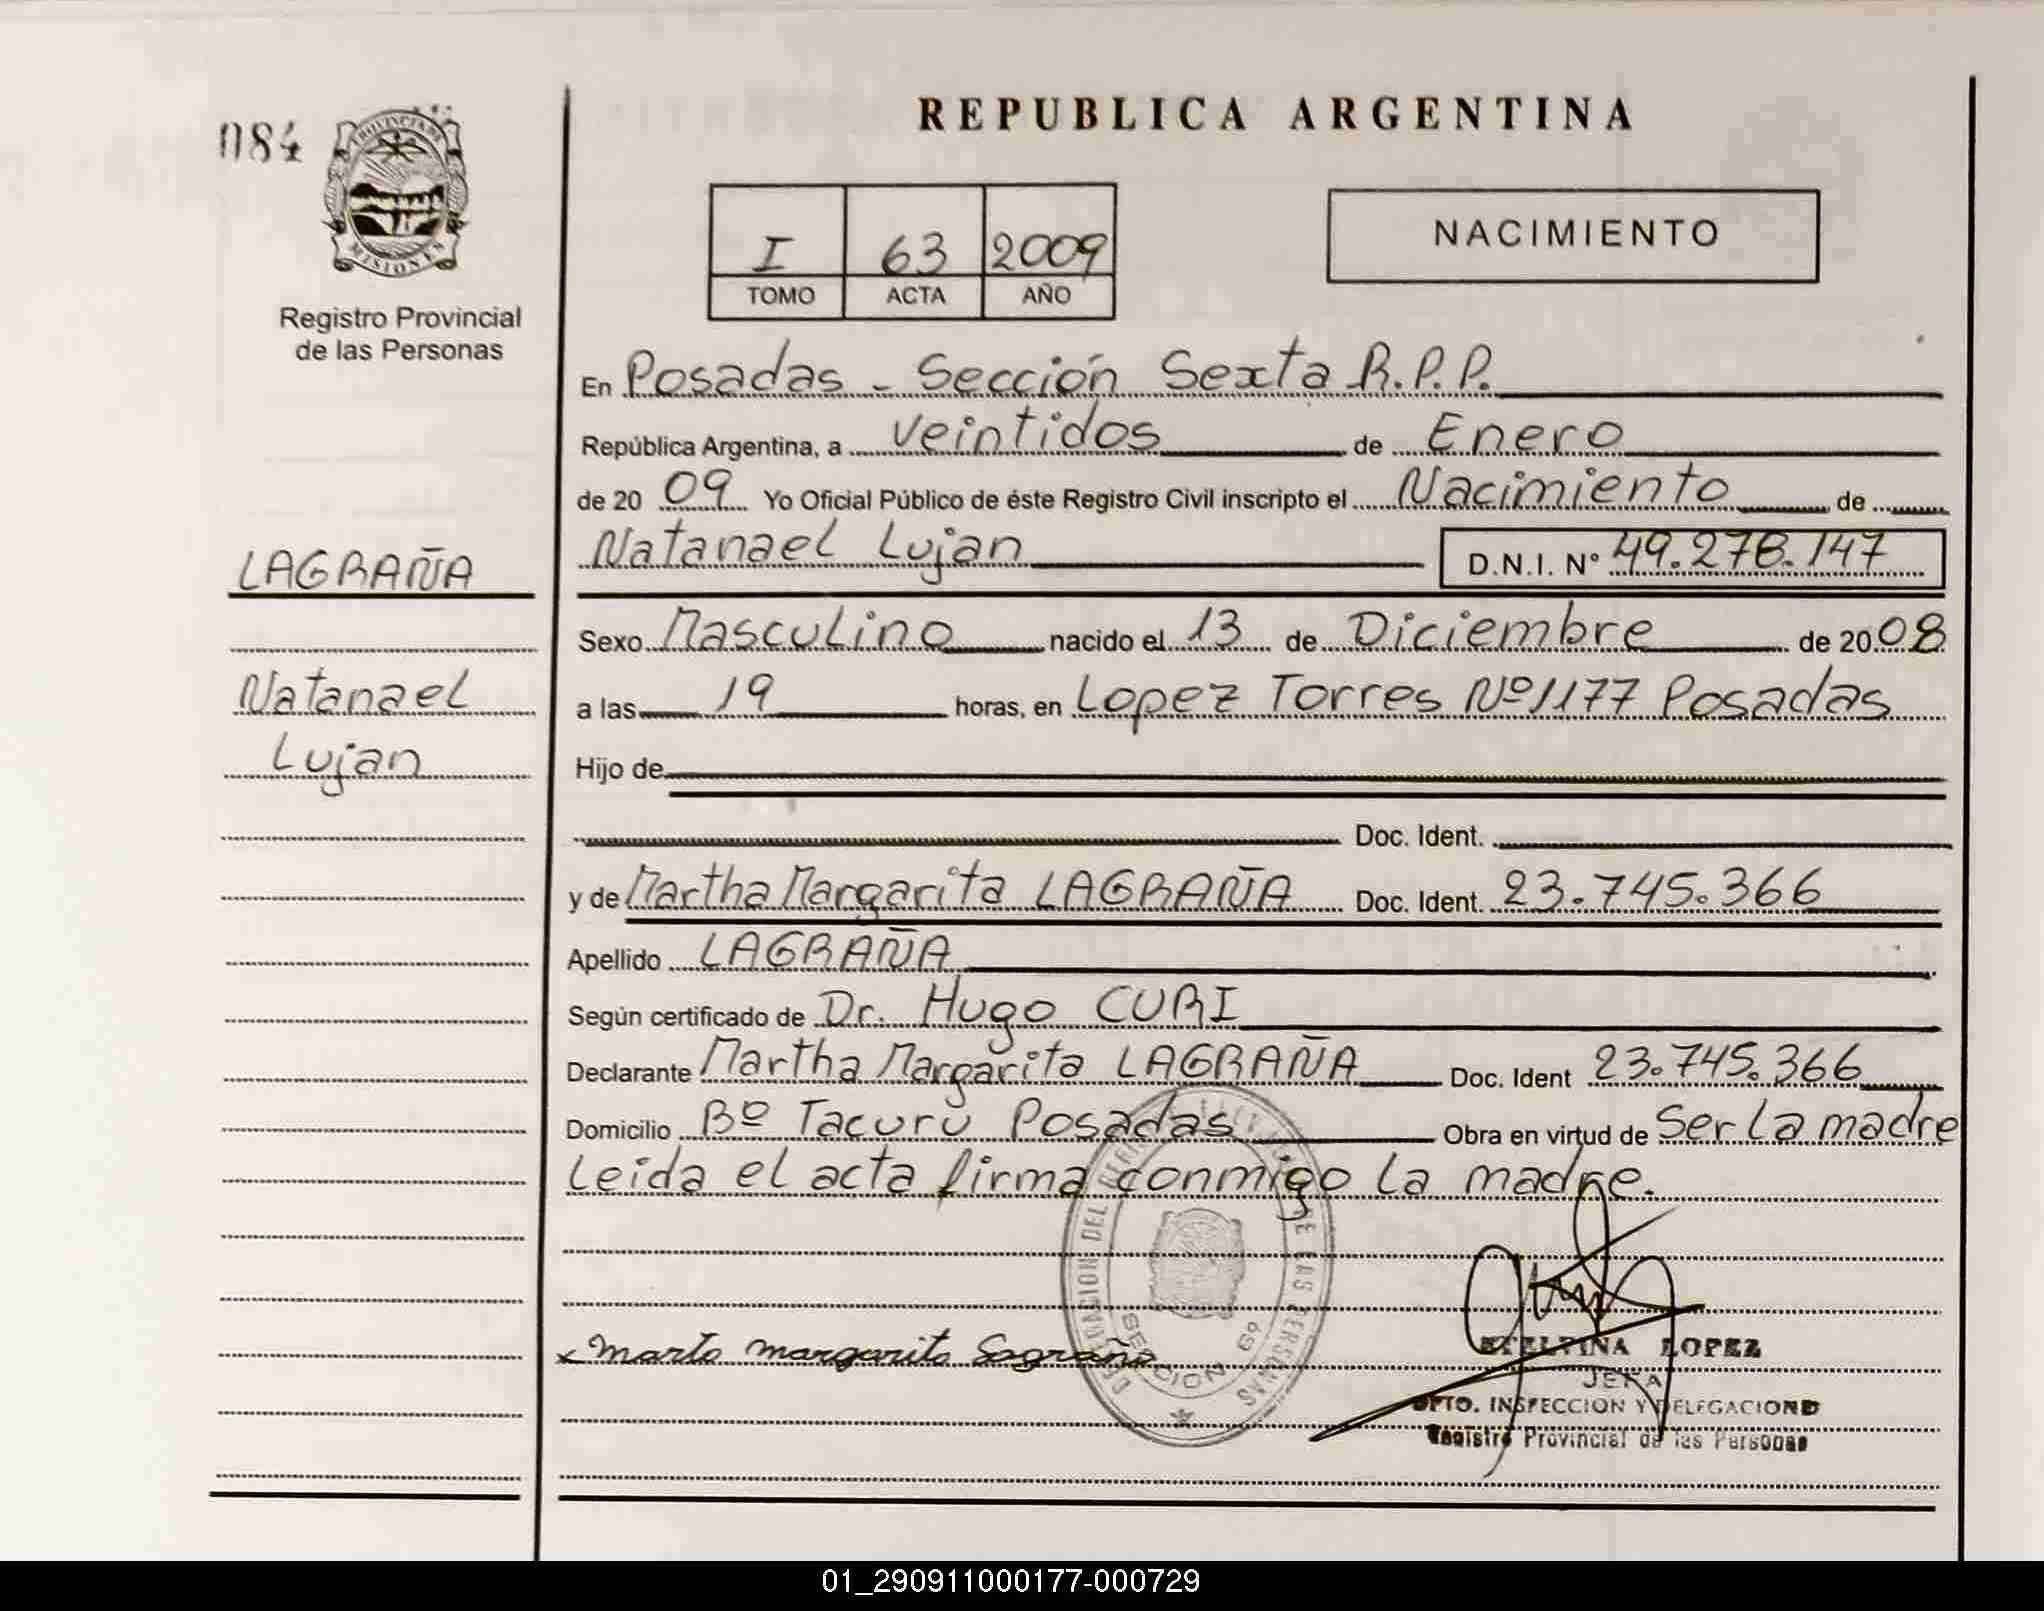 084
PROVINCIA DE
MISIONES
Registro Provincial
de las Personas
REPUBLICA ARGENTINA
I 63 2009
TOMO ACTA AÑO
NACIMIENTO
En Posadas - Sección Sexta R.P.P.
República Argentina, a veintidos de Enero
de 20 09 Yo Oficial Público de éste Registro Civil inscripto el Nacimiento de
Natanael Lujan D.N.I. Nº 49.278.147
LAGRAÑA
Natanael
Lujan
Sexo Masculino nacido el 13 de Diciembre de 20 08
a las 19 horas, en Lopez Torres Nº 1177 Posadas
Hijo de
Doc. Ident.
y de Martha Margarita LAGRAÑA Doc. Ident. 23.745.366
Apellido LAGRAÑA
Según certificado de Dr. Hugo CURI
Declarante Martha Margarita LAGRAÑA Doc. Ident 23.745.366
Domicilio Bº Tacuru Posadas Obra en virtud de Ser la madre
Leida el acta firma conmigo la madre.
x Marta margarita Lagraña
SECCION 6º
DE LAS PERSONAS
ETELVINA LOPEZ
JEFA
DPTO. INSPECCION Y DELEGACIONES
Registro Provincial de las Personas
01_290911000177-000729